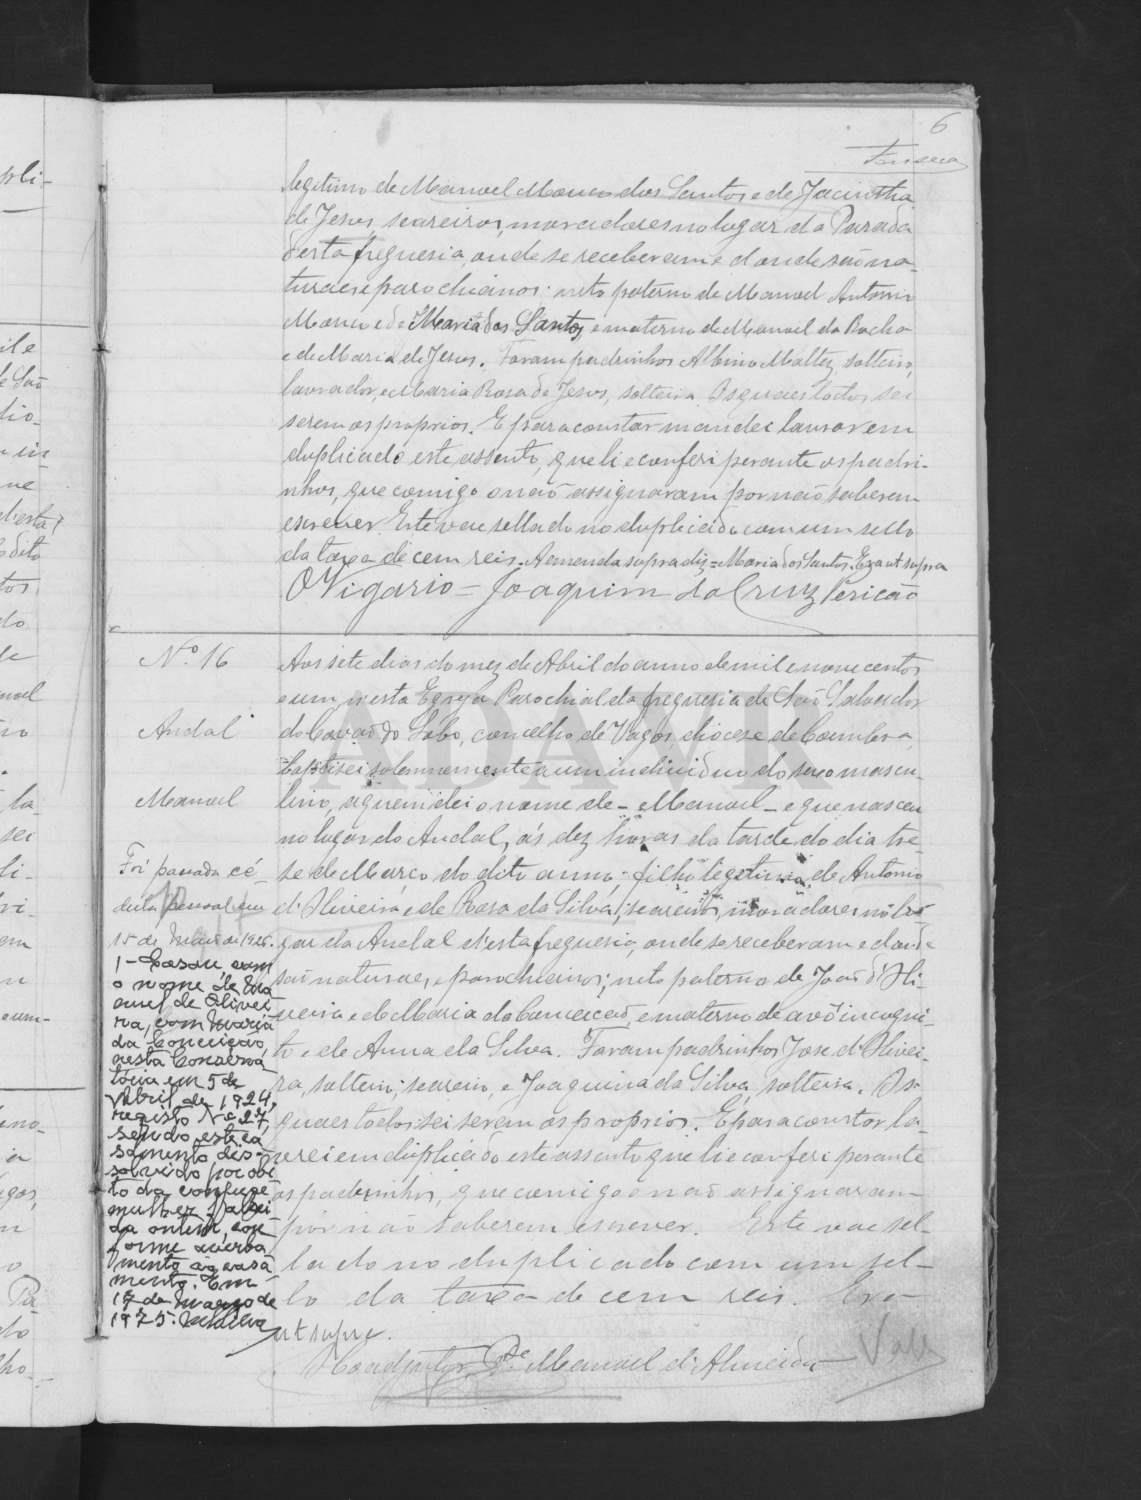 6
Fonseca
legitimo de Manuel Mouco dos Santos e de Jacintha
de Jesus, seareiros, moradores no lugar da Parada
d'esta freguesia, onde se receberam e d'onde são na-
turaes e parochianos: neto paterno de Manuel Antonio
Mouco e de Maria dos Santos, e materno de Manoel da Rocha
e de Maria de Jesus. Foram padrinhos Albino Maltez, solteiro,
lavrador, e Maria Rosa de Jesus, solteira. Os quaes todos sei
serem os proprios. E para constar mandei lavrar em
duplicado este assento, que li e conferi perante os padri-
nhos, que comigo o não assignaram por não saberem
escrever. Este vae sellado no duplicado com um sello
da taxa de cem reis. A emenda supra diz = Maria dos Santos. Era ut supra
O Vigario = Joaquim da Cruz Pericão
Nº 16
Andal
Manuel
Foi passada cé-
dula pessoal em
15 de Maio de 1926.
1 - Casou, com
o nome de Ma-
nuel de Olivei-
ra, com Maria
da Conceição,
nesta Conserva-
tória em 5 de
Abril de 1924,
registo Nº 27,
sendo este ca-
samento dis-
solvido por óbi-
to da conjuge
mulher faleci-
da ontem, con-
forme averba-
mento ao casa-
mento. Em
17 de Março de
1975.
Aos sete dias do mez de Abril do anno de mil e nove centos
e um, n'esta Egreja Parochial da freguesia de São Salvador
do Covão do Lobo, concelho de Vagos, diocese de Coimbra,
baptisei solemnemente a um individuo do sexo mascu-
lino, a quem dei o nome de - Manuel - e que nasceu
no lugar do Andal, ás dez horas da tarde do dia tre-
se de Março do dito anno; filho legitimo de Antonio
d'Oliveira e de Rosa da Silva, seareiros, moradores no lu-
gar do Andal d'esta freguesia, onde se receberam e d'onde
são naturaes, e parochianos; neto paterno de João d'Oli-
veira e de Maria da Conceição, e materno de avô incogni-
to e de Anna da Silva. Foram padrinhos José d'Olivei-
ra, solteiro, seareiro, e Joaquina da Silva, solteira. Os
quaes todos sei serem os proprios. E para constar la-
vrei em duplicado este assento que li e conferi perante
os padrinhos, que comigo o não assignaram
por não saberem escrever. Este vae sel-
lado no duplicado com um sel-
lo da taxa de cem reis. Era
ut supra.
O Coadjutor P.e Manuel d'Almeida
ADAVR